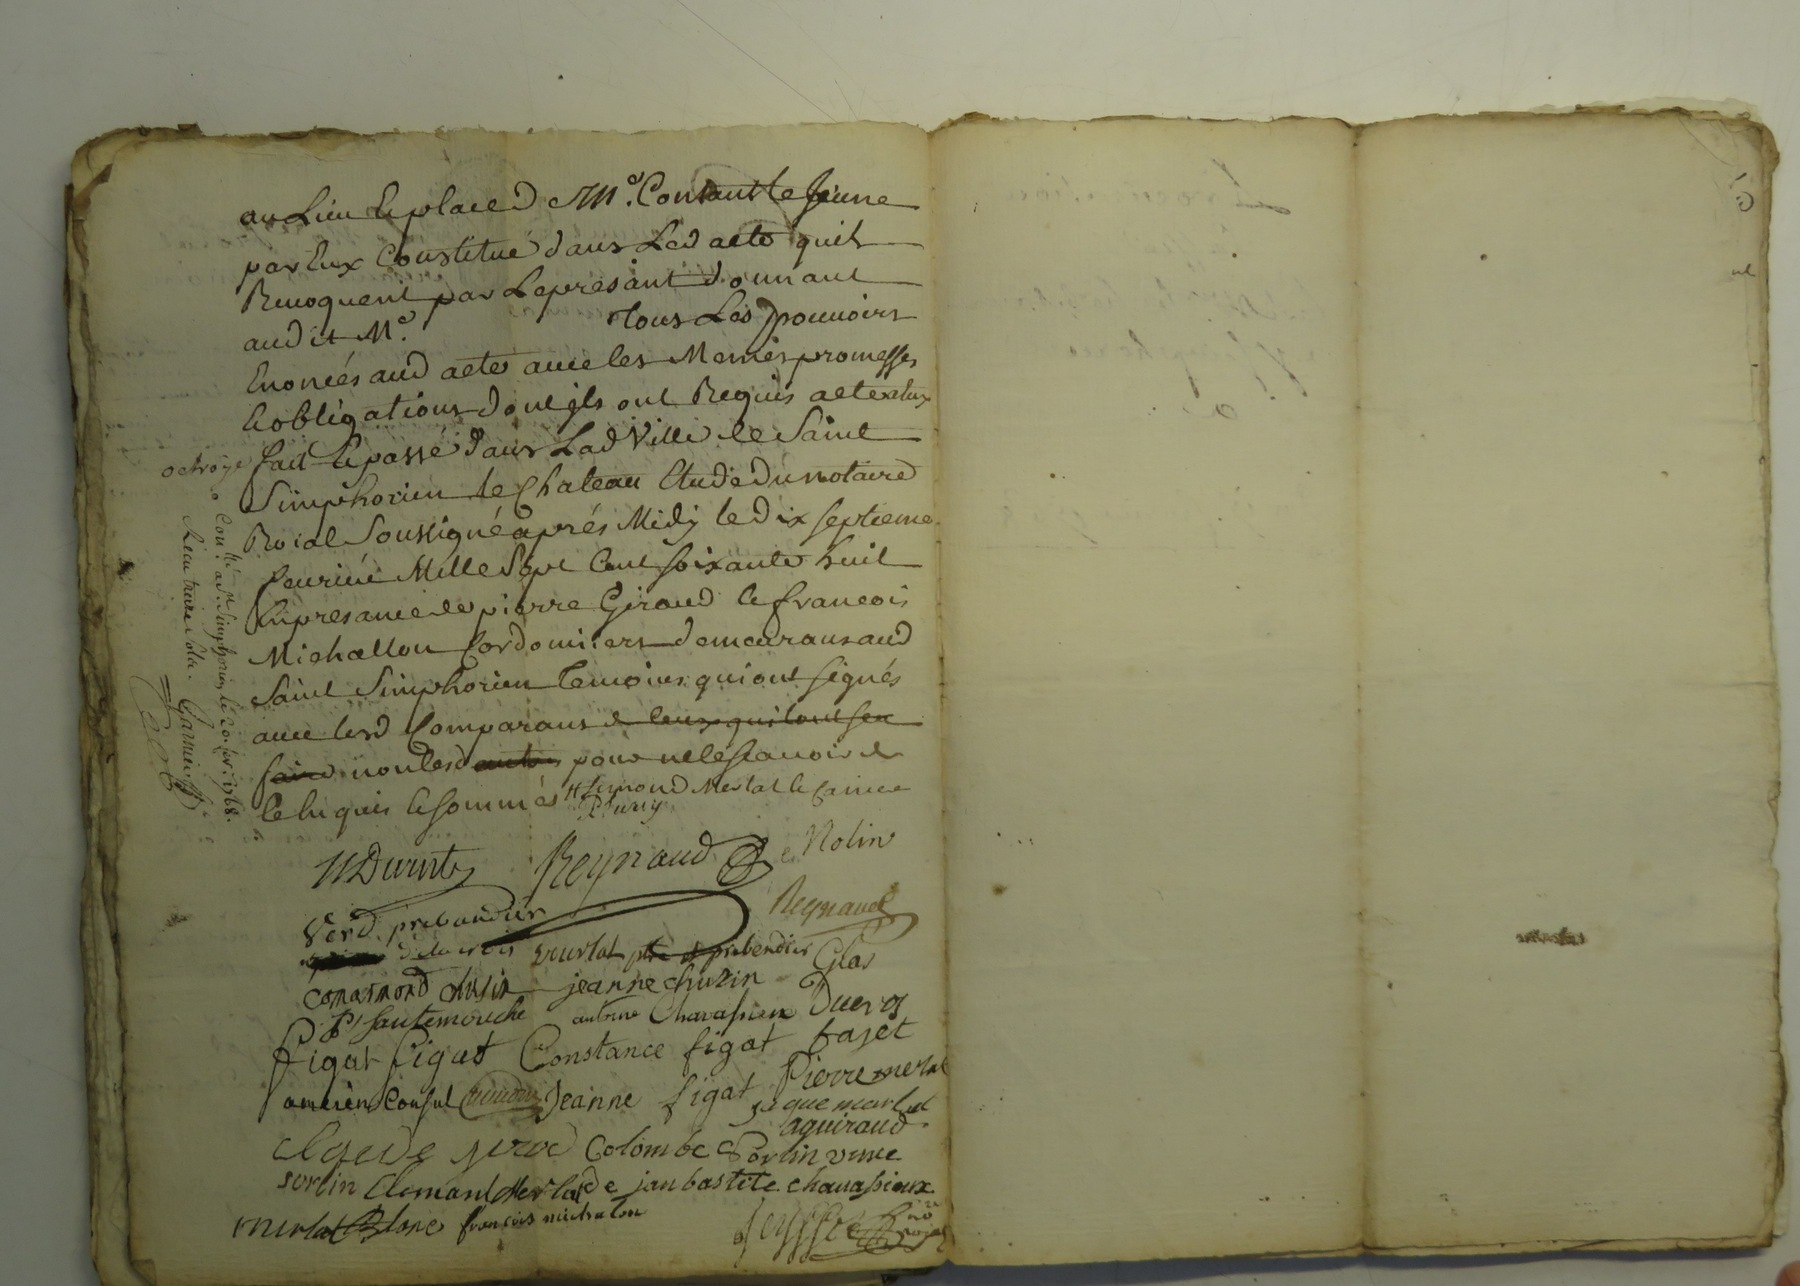 au Lieu & place de Me. Constant le Jeune
par Eux Constitué dans Led acte quils
Revoquent par Le presant donnant
audit Me. tous Les pouvoirs
Enoncés aud acte avec les Memes promesses
& obligations dont ils ont Requis acte
octroyé fait & passé dans Lad Ville de Saint
Simphorien le Chateau Etude du notaire
Roial Soussigné aprés Midy le dix septieme
fevrier Mille Sept Cent soixante huit
En presance de pierre Giraud & francois
Michallon Cordonniers demeurans aud
Saint Simphorien temoins qui ont signés
avec lesd Comparans
non les pour ne le scavoir de
ce Enquis & sommés
Con.lé a St. Simphorien le 20. fev. 1768.
Recu treize sols. Garnier
Reynaud Nolin
Verd prebandier Reynaud
delacroix prebendier Glas
jeanne chuzin
P. sautemouche antoine Chavassieux Ducros
figat figat Constance figat fajet
ancien Consul Jeanne figat Pierre merlat
jaque merlat
aguiraud
Colombe Sorlin veuve
sorlin Clemant Merlat de jan bastite chavassieux
merlat françois michalon
no. royal